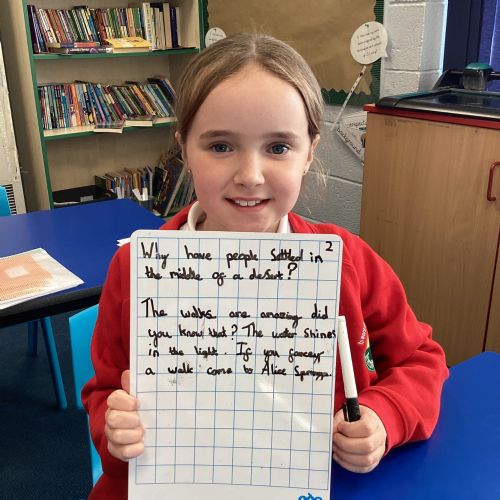 2
Why have people settled in
the middle of a desert?
The walks are amazing did
you know that? The water shines
in the light. If you fancey
a walk come to Alice Springs.